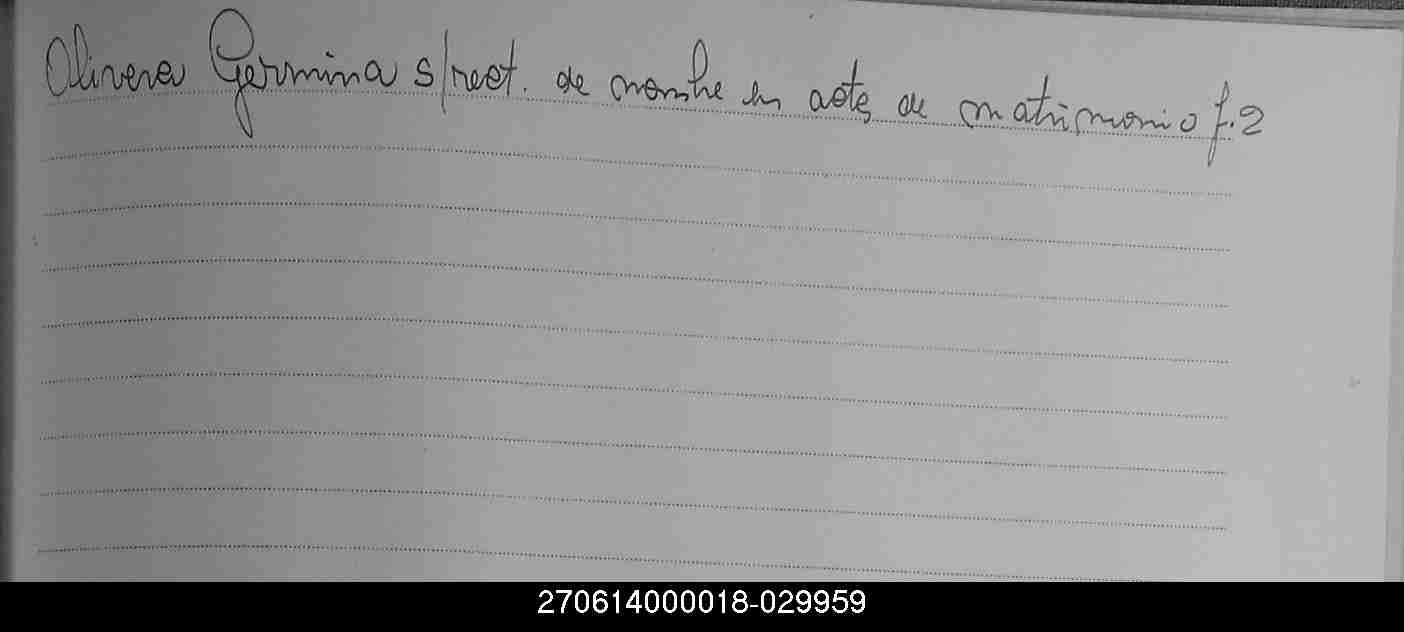 Olivera Germina s/rect. de nombre en acta de matrimonio f.2
270614000018-029959